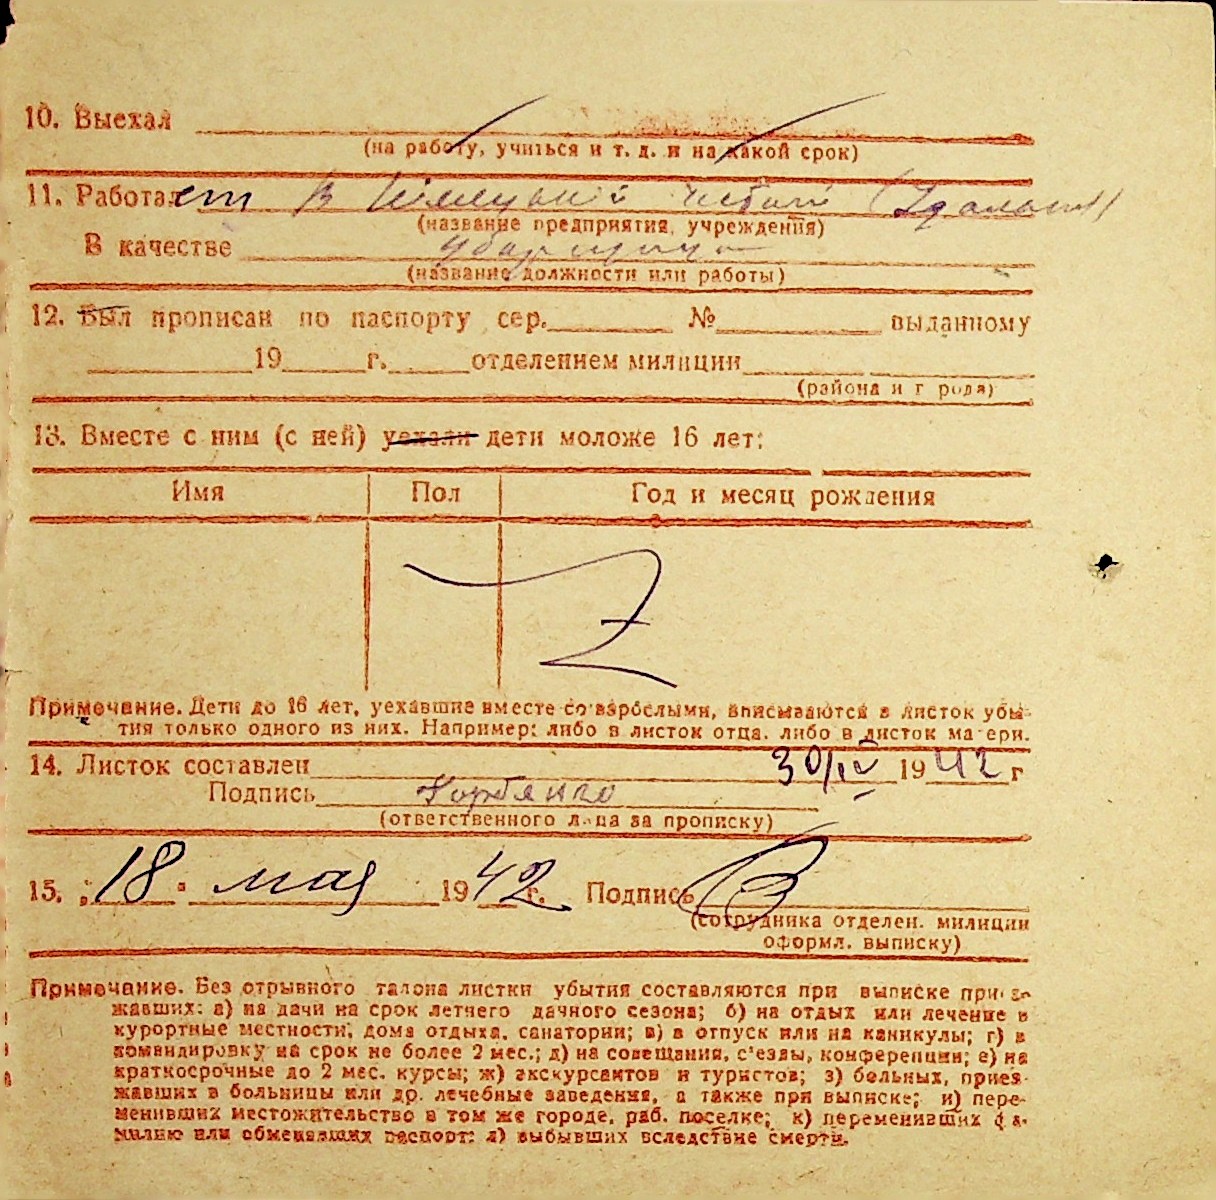 10. Выехал
(на работу, учиться и т. д. и на какой срок)
11. Работает в
(название предприятия, учреждения)
В качестве
(название должности или работы)
12. Был прописан по паспорту сер. № выданному
19 г. отделением милиции
(района и города)
13. Вместе с ним (с ней) уехали дети моложе 16 лет:
Имя Пол Год и месяц рождения
Z
Примечание. Дети до 16 лет, уехавшие вместе со взрослыми, вписываются в листок убы-
тия только одного из них. Например: либо в листок отца, либо в листок матери.
14. Листок составлен 30/IV 1942 г
Подпись
(ответственного лица за прописку)
15. „18" мая 1942 г. Подпись
(сотрудника отделен. милиции
оформл. выписку)
Примечание. Без отрывного талона листки убытия составляются при выписке приез-
жавших: а) на дачи на срок летнего дачного сезона; б) на отдых или лечение в
курортные местности, дома отдыха, санатории; в) в отпуск или на каникулы; г) в
командировку на срок не более 2 мес.; д) на совещания, с'езды, конференции; е) на
краткосрочные до 2 мес. курсы; ж) экскурсантов и туристов; з) больных, приез-
жавших в больницы или др. лечебные заведения, а также при выписке; и) пере-
менивших местожительство в том же городе, раб. поселке; к) переменивших фа-
милию или обменявших паспорт; л) выбывших вследствие смерти.